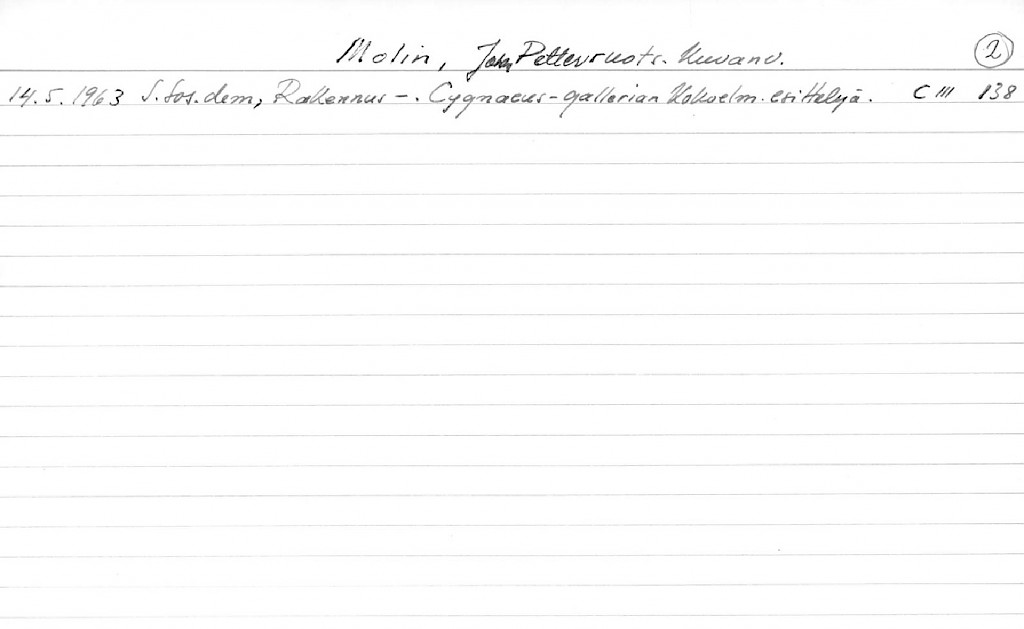 Molin, John Petter ruots. Kuvanv. 2
14.5.1963 S. Sos. dem, Rakennus -. Cygnaeus-gallerian Kokoelm. esittelyä. C III 138